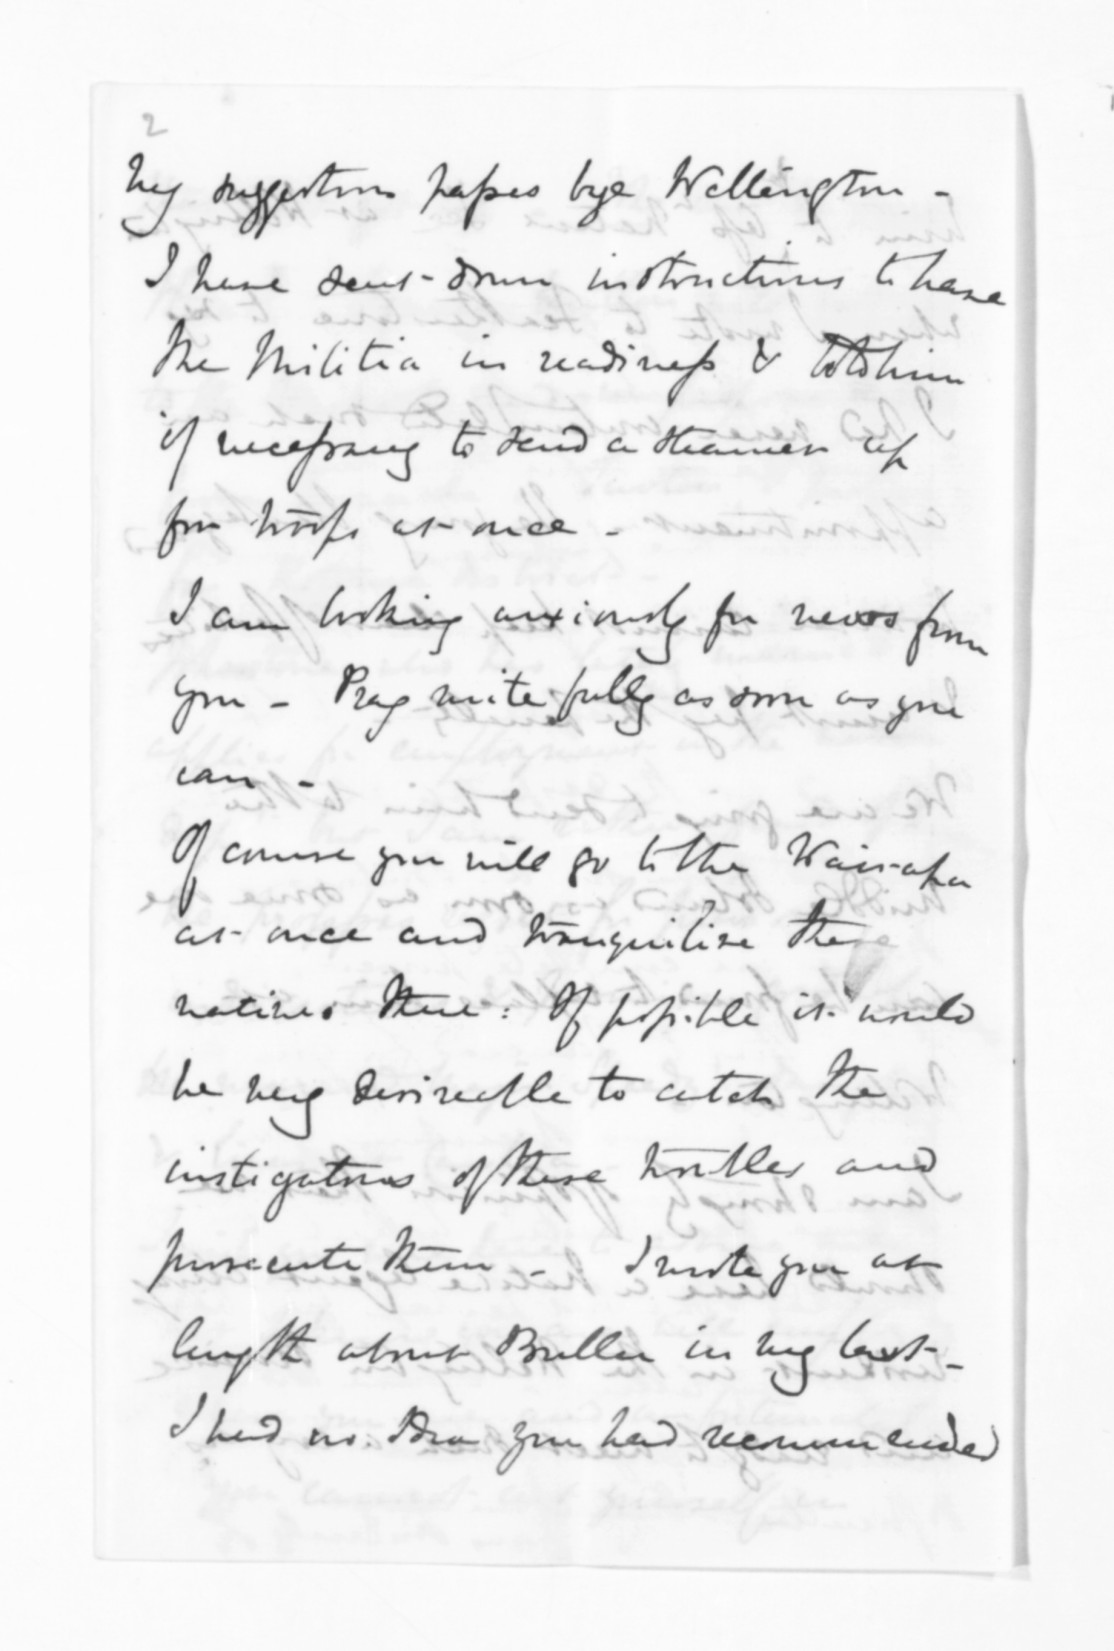 2
my suggestions passes bye Wellington -
I have sent down instructions to have
the Militia in readiness & told him
if necessary to send a steamer up
for troops at once -
I am looking anxiously for news from
you - Pray write fully as soon as you
can -
Of course you will go to the Wairarapa
at once and tranquilize the
natives there: If possible it would
be very desireable to catch the
instigators of these troubles and
prosecute them - I wrote you at
length about Buller in my last -
I had no idea you had recommended